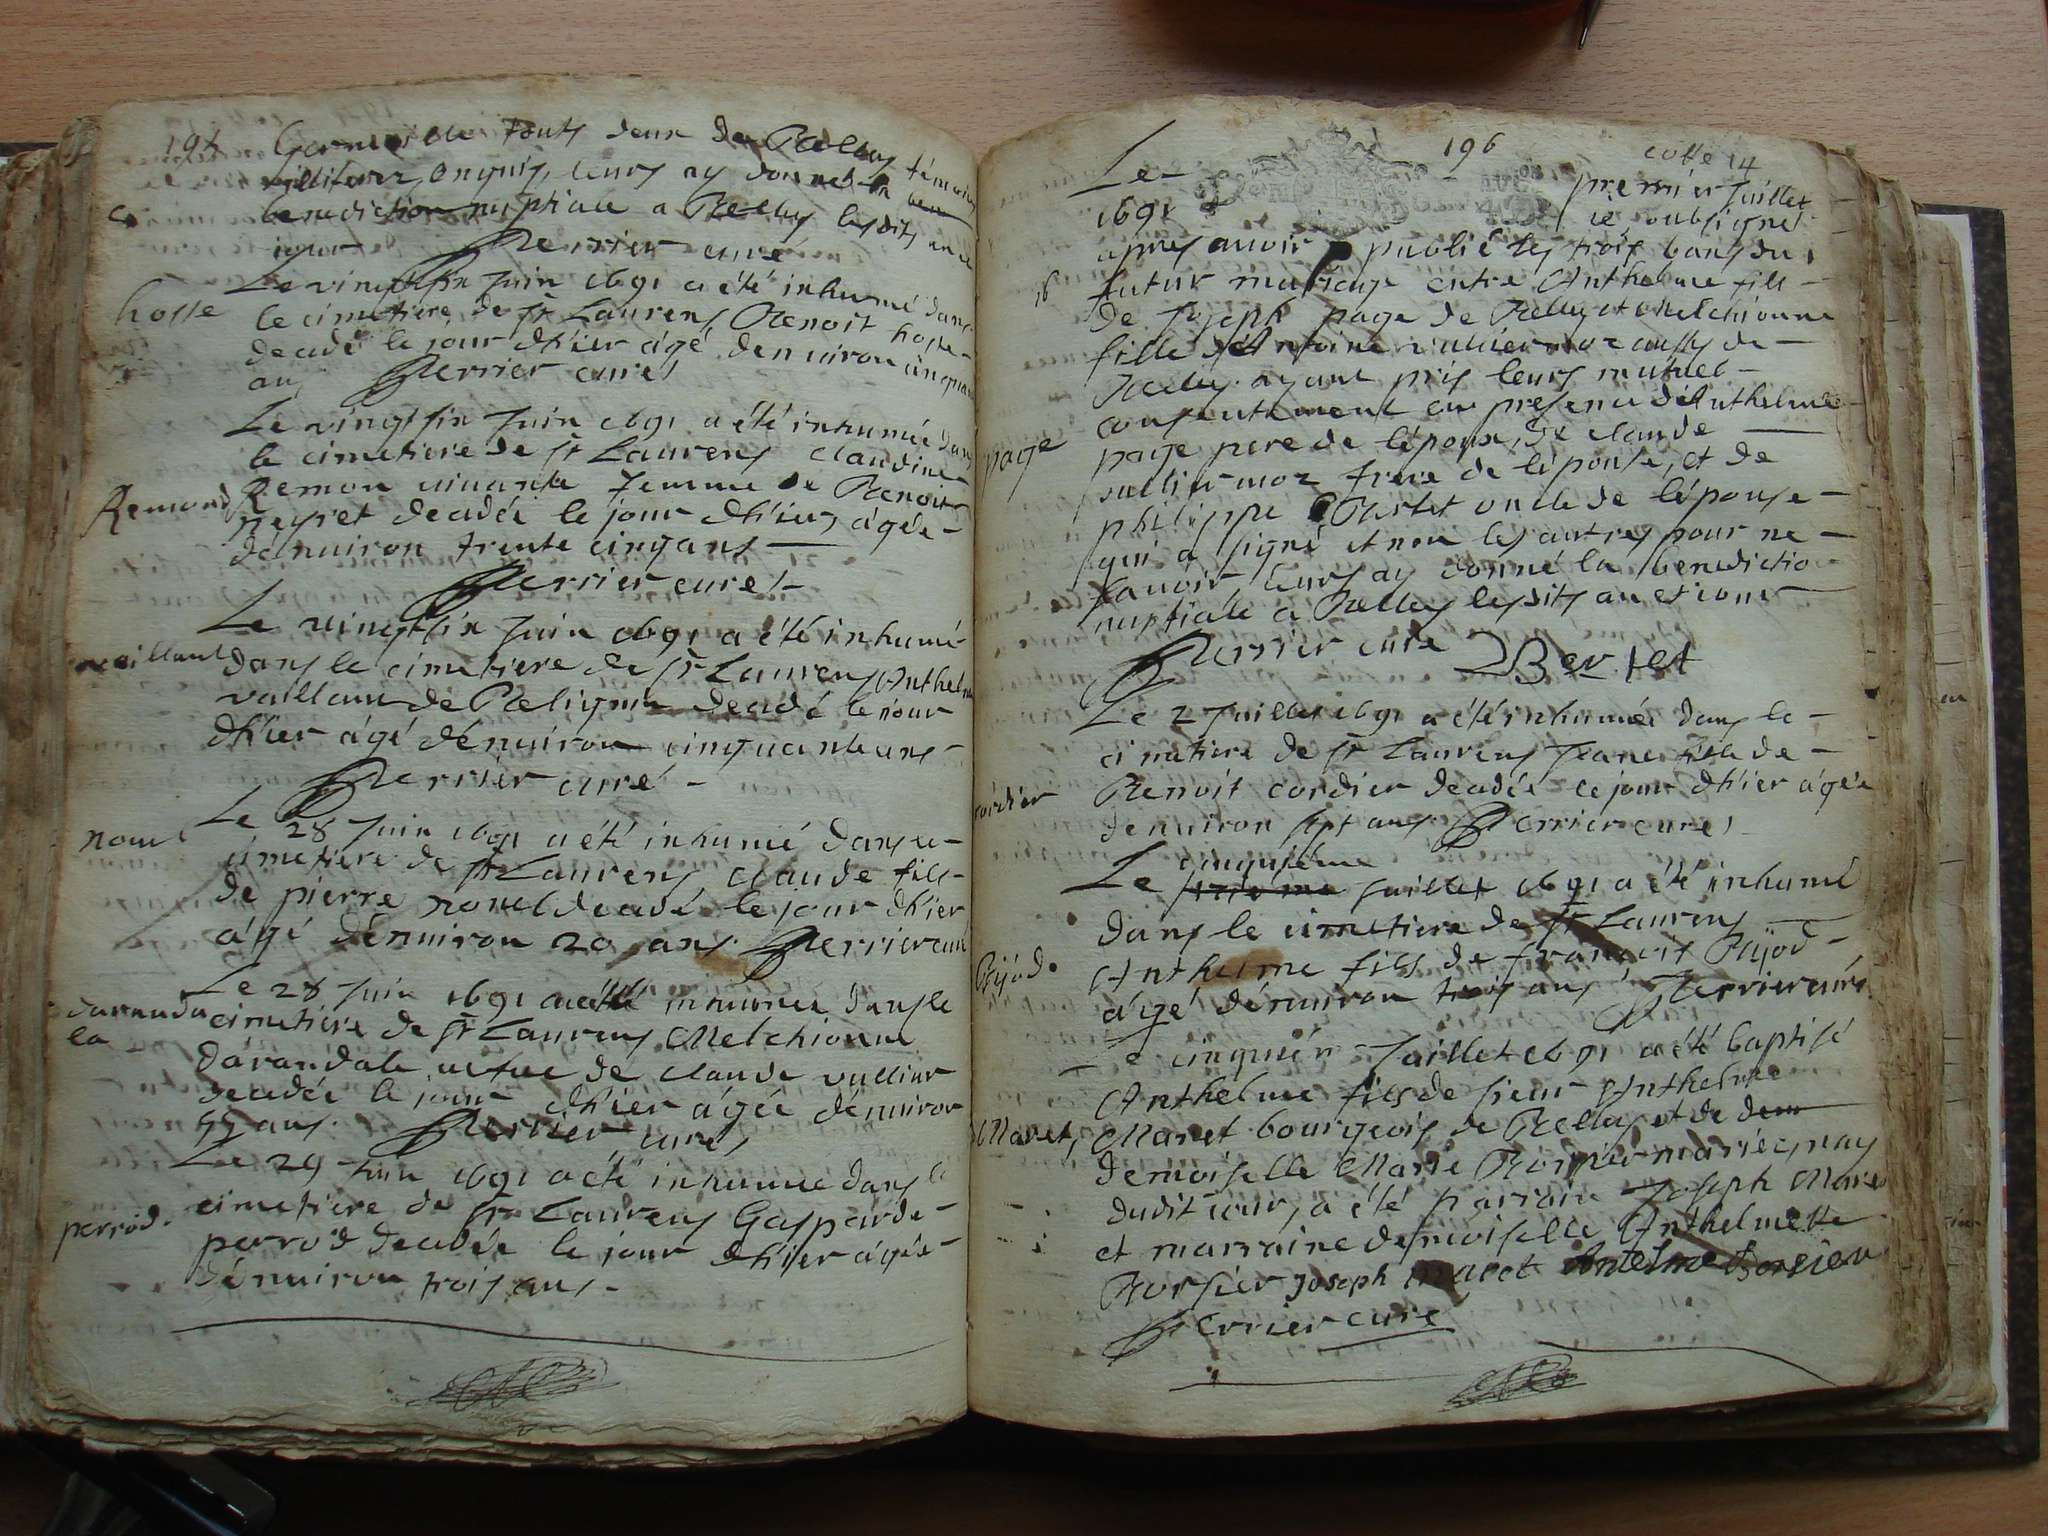 194 touts deux de Belley témoins
leurs ay donné la ben
benediction nuptiale a Belley lesdits an et
iour Perrier curé
Le vingt six Juin 1691 a été inhumé dans
hoste
le cimetiere de st Laurens Benoit hoste
decedé le jour d'hier agé denuiron cinquante
ans Perrier curé
Le vingt six Juin 1691 a été inhumée dans
le cimetiere de st Laurens claudine
Remond
Remon uiuante femme de Benoit
neyret decedée le jour d'hier, agée
dénuiron trente cinq ans
Perrier curé
Le vingt six Juin 1691 a été inhumé
vaillant
dans le cimetiere de st Laurens Anthelme
vaillant de decedé le iour
d'hier agé dénuiron cinquante ans
Perrier curé
Le 28 Juin 1691 a été inhumé dans le
nouel
cimetiere de st Laurens claude fils
de pierre nouel decedé le jour d'hier
agé dénuiron 20 ans Perrier curé
Le 28 Juin 1691 a été inhumée dans le
daranda
la
cimetiere de st Laurens Melchionne
darandala uefue de claude vullier
decedée le jour d'hier agée dénuiron
55 ans. Perrier curé
Le 29 Juin 1691 a été inhumée dans le
cimetiere de st Laurens Gasparde
perrod.
perrod decedée le jour d'hier agée
dénuiron trois ans
196 cotte 14
Le premier Juillet
1691 ie soubsigné
apres auoir publié les trois bans du
16
futur mariage entre Anthelme fils
de Joseph page de Belley et Melchionne
fille d'Antoine vulliermoz aussy de
Belley. ayant pris leurs mutuel
consentement en presence d'Anthelme
page
page pere de l'époux, de claude
vulliermoz frere de l'épouse, et de
philippe Bertet oncle de l'épouse
qui a signé et non les autres pour ne
sauoir, leurs ay donné la benediction
nuptiale a Belley lesdits an et iour
Perrier curé Bertet
Le 2 Juillet 1691 a été inhumée dans le
cimetiere de st Laurens Jeane fille de
cordier
Benoit cordier decedée le jour d'hier agée
denuiron sept ans. Perrier curé
cinquiéme
Le Juillet 1691 a été inhumé
dans le cimetiere de st Laurens
Bijod.
Anthelme fils de françois Bijod
agé dénuiron trois ans Perrier curé
Le cinquiém Juillet 1691 a été baptisé
Anthelme fils de sieur Anthelme
Maret,
Maret bourgeois de Belley et de dem
demoiselle Marie Borsier mariés, nay
dudit iour, a été parrain Joseph Maret
et marraine demoiselle Anthelmette
Borsier Joseph maret Antelme Borsier
Perrier curé